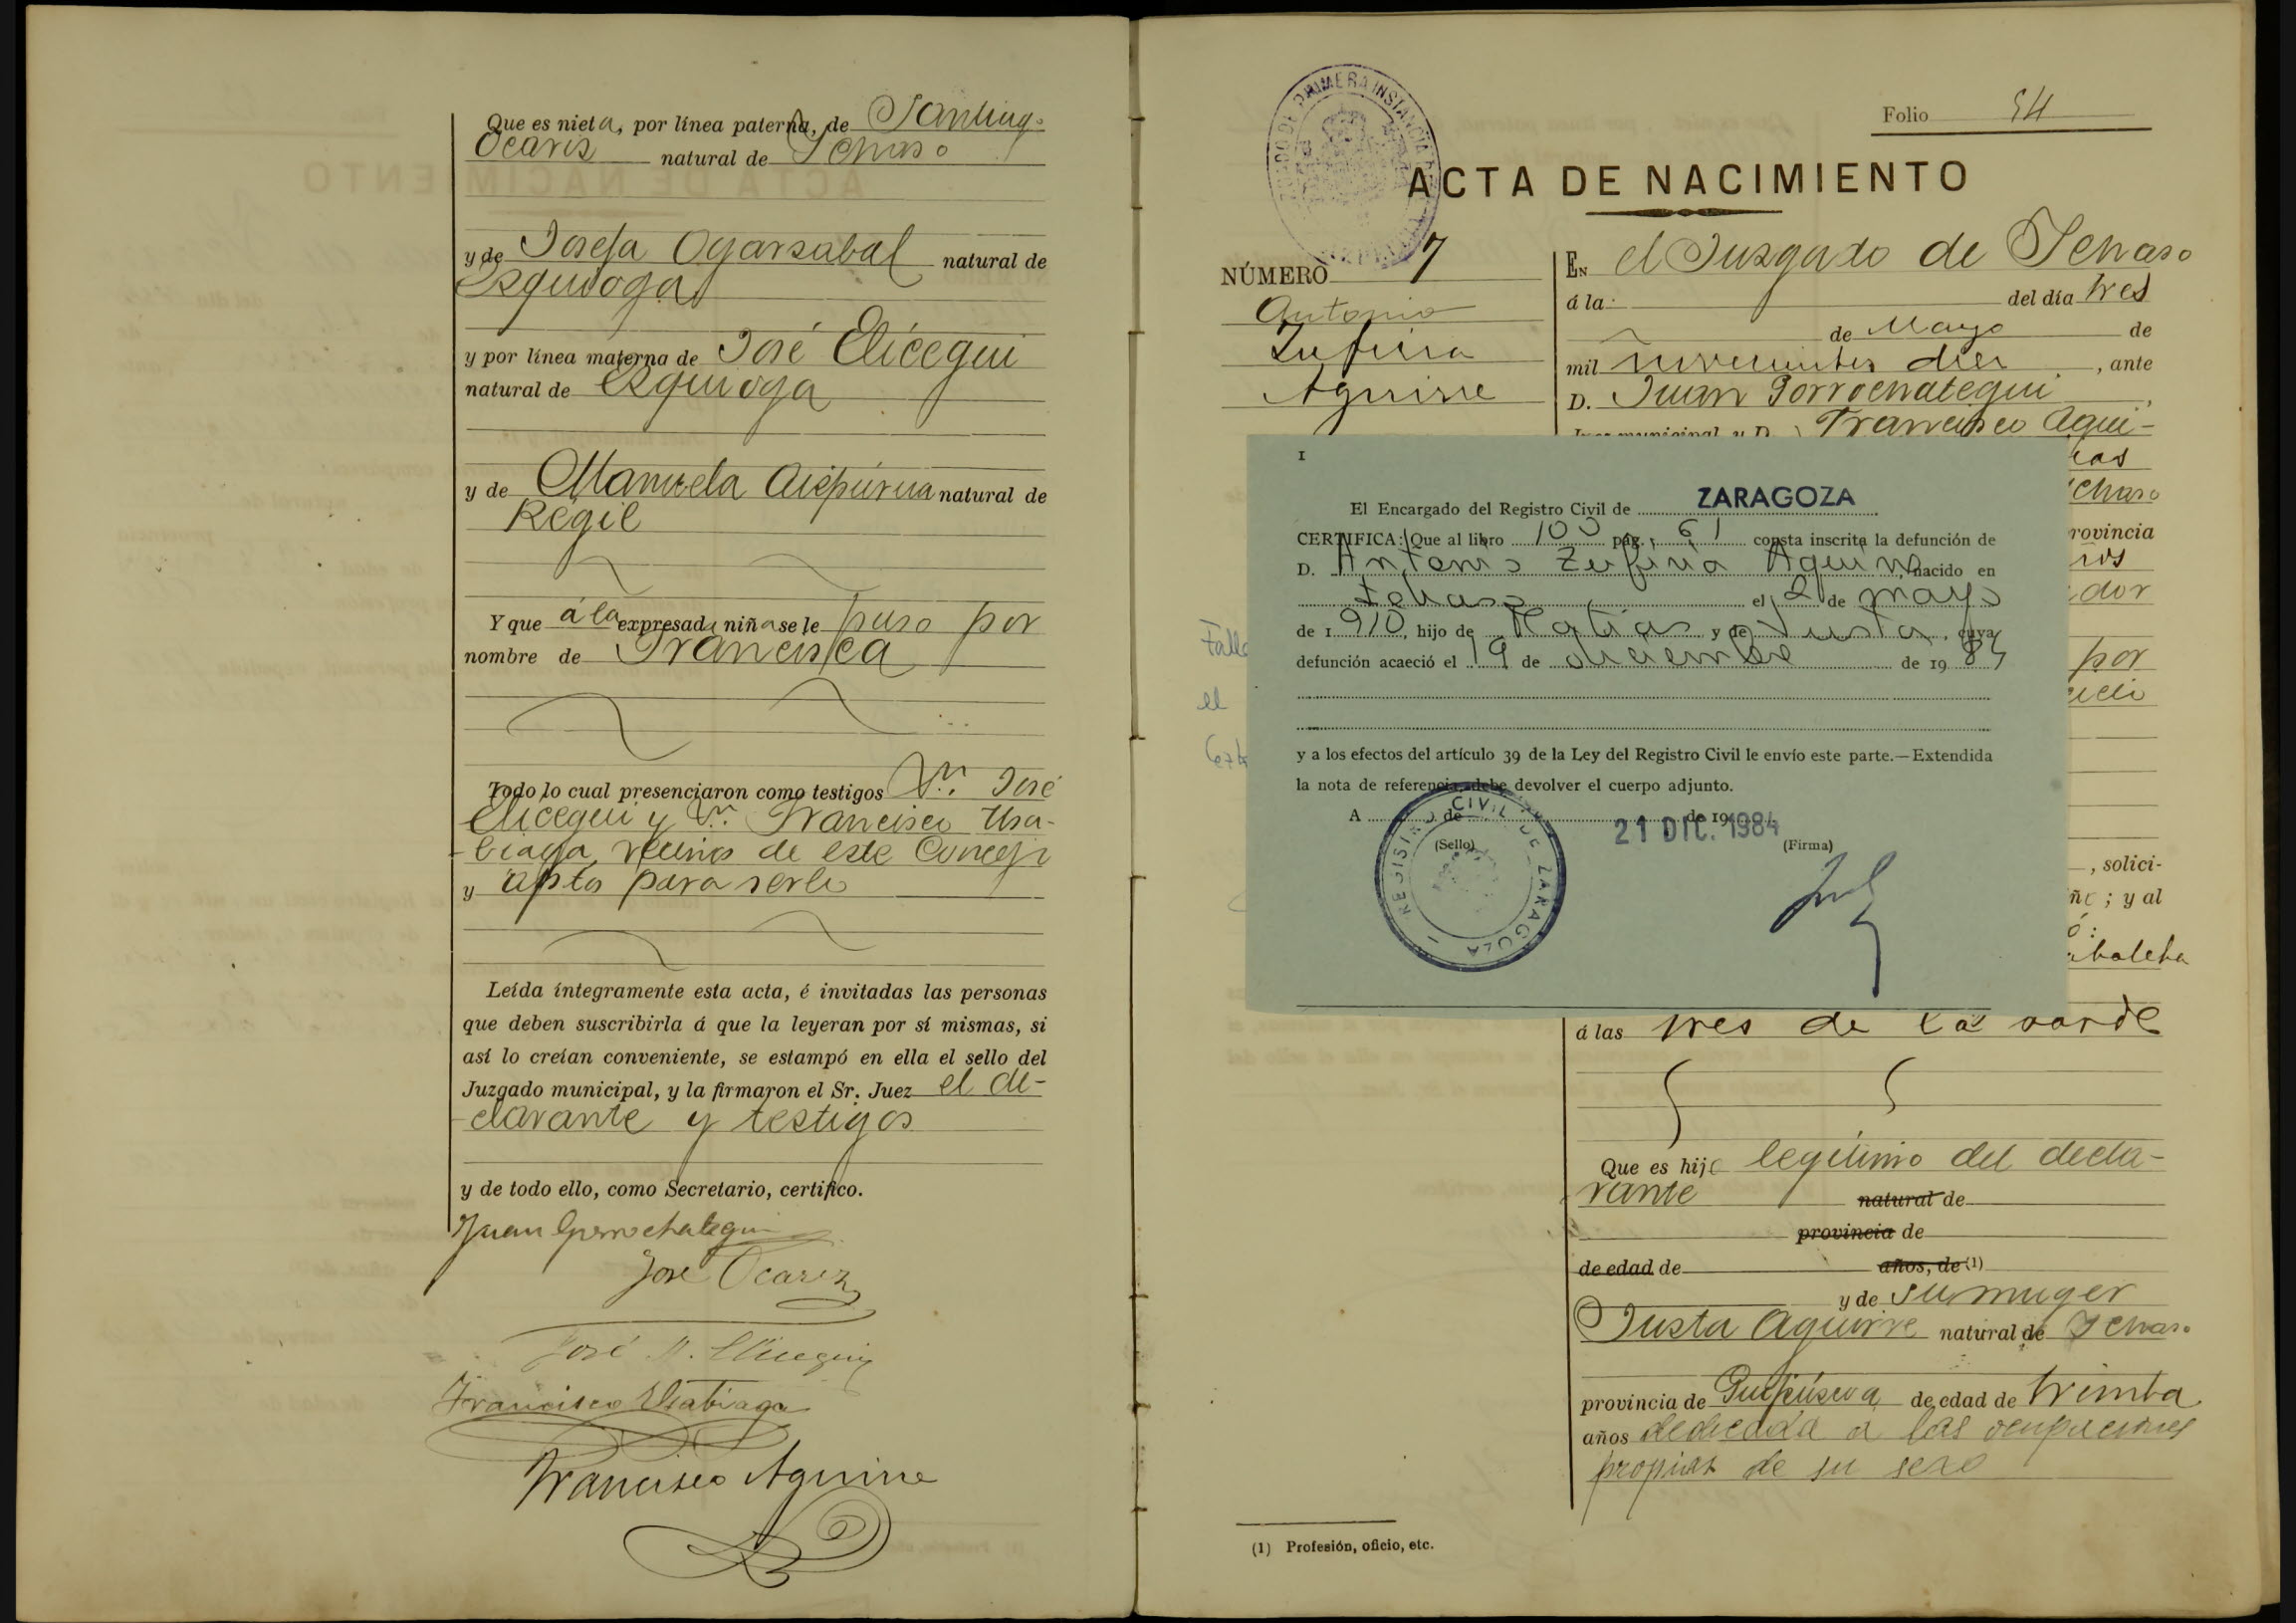 Que es nieta, por línea paterna, de Santiag.
Ocariz natural de Ichaso
y de Josefa Oyarzabal natural de
Ezquioga
y por línea materna de José Elícegui
natural de Ezquioga
y de Manuela Aizpurua natural de
Régil
Y que á la expresada niña se le puso por
nombre de Francisca
Todo lo cual presenciaron como testigos Dn. José
Elicegui y Dn. Francisco Usa-
biaga, vecinos de este Concejo
y aptos para serlo
Leída íntegramente esta acta, é invitadas las personas
que deben suscribirla á que la leyeran por sí mismas, si
así lo creían conveniente, se estampó en ella el sello del
Juzgado municipal, y la firmaron el Sr. Juez el de-
clarante y testigos
y de todo ello, como Secretario, certifico.
Juan Gorrochategui
José Ocariz
José M. Elicegui
Francisco Usabiaga
Francisco Aguirre
Folio 54
ACTA DE NACIMIENTO
NÚMERO 7
Antonio
Zufiria
Aguirre
EN el Juzgado de Ichaso
á la: del día tres
de Mayo de
mil novecientos diez, ante
D. Juan Gorrochategui,
Juez municipal y D. Francisco Agui-
chaso
rovincia
ños
dor
por
, solici-
ñc; y al
ó:
á las tres de la tarde
Que es hijo legítimo del decla-
rante natural de
provincia de
de edad de años, de (1)
y de su muger
Justa Aguirre natural de Ichaso
provincia de Guipúzcoa de edad de treinta
años dedicada a las ocupaciones
propias de su sexo
(1) Profesión, oficio, etc.
Falle
el
1
El Encargado del Registro Civil de ZARAGOZA
CERTIFICA: Que al libro 100 pág. 61 consta inscrita la defunción de
D. Antonio Zufiria Aguirre, nacido en
Ichaso el 2 de mayo
de 1910, hijo de Matías y de Justa, cuya
defunción acaeció el 19 de diciembre de 1984
y a los efectos del artículo 39 de la Ley del Registro Civil le envío este parte.—Extendida
la nota de referencia, debe devolver el cuerpo adjunto.
A de de 19
21 DIC. 1984
(Sello) (Firma)
REGISTRO CIVIL DE ZARAGOZA